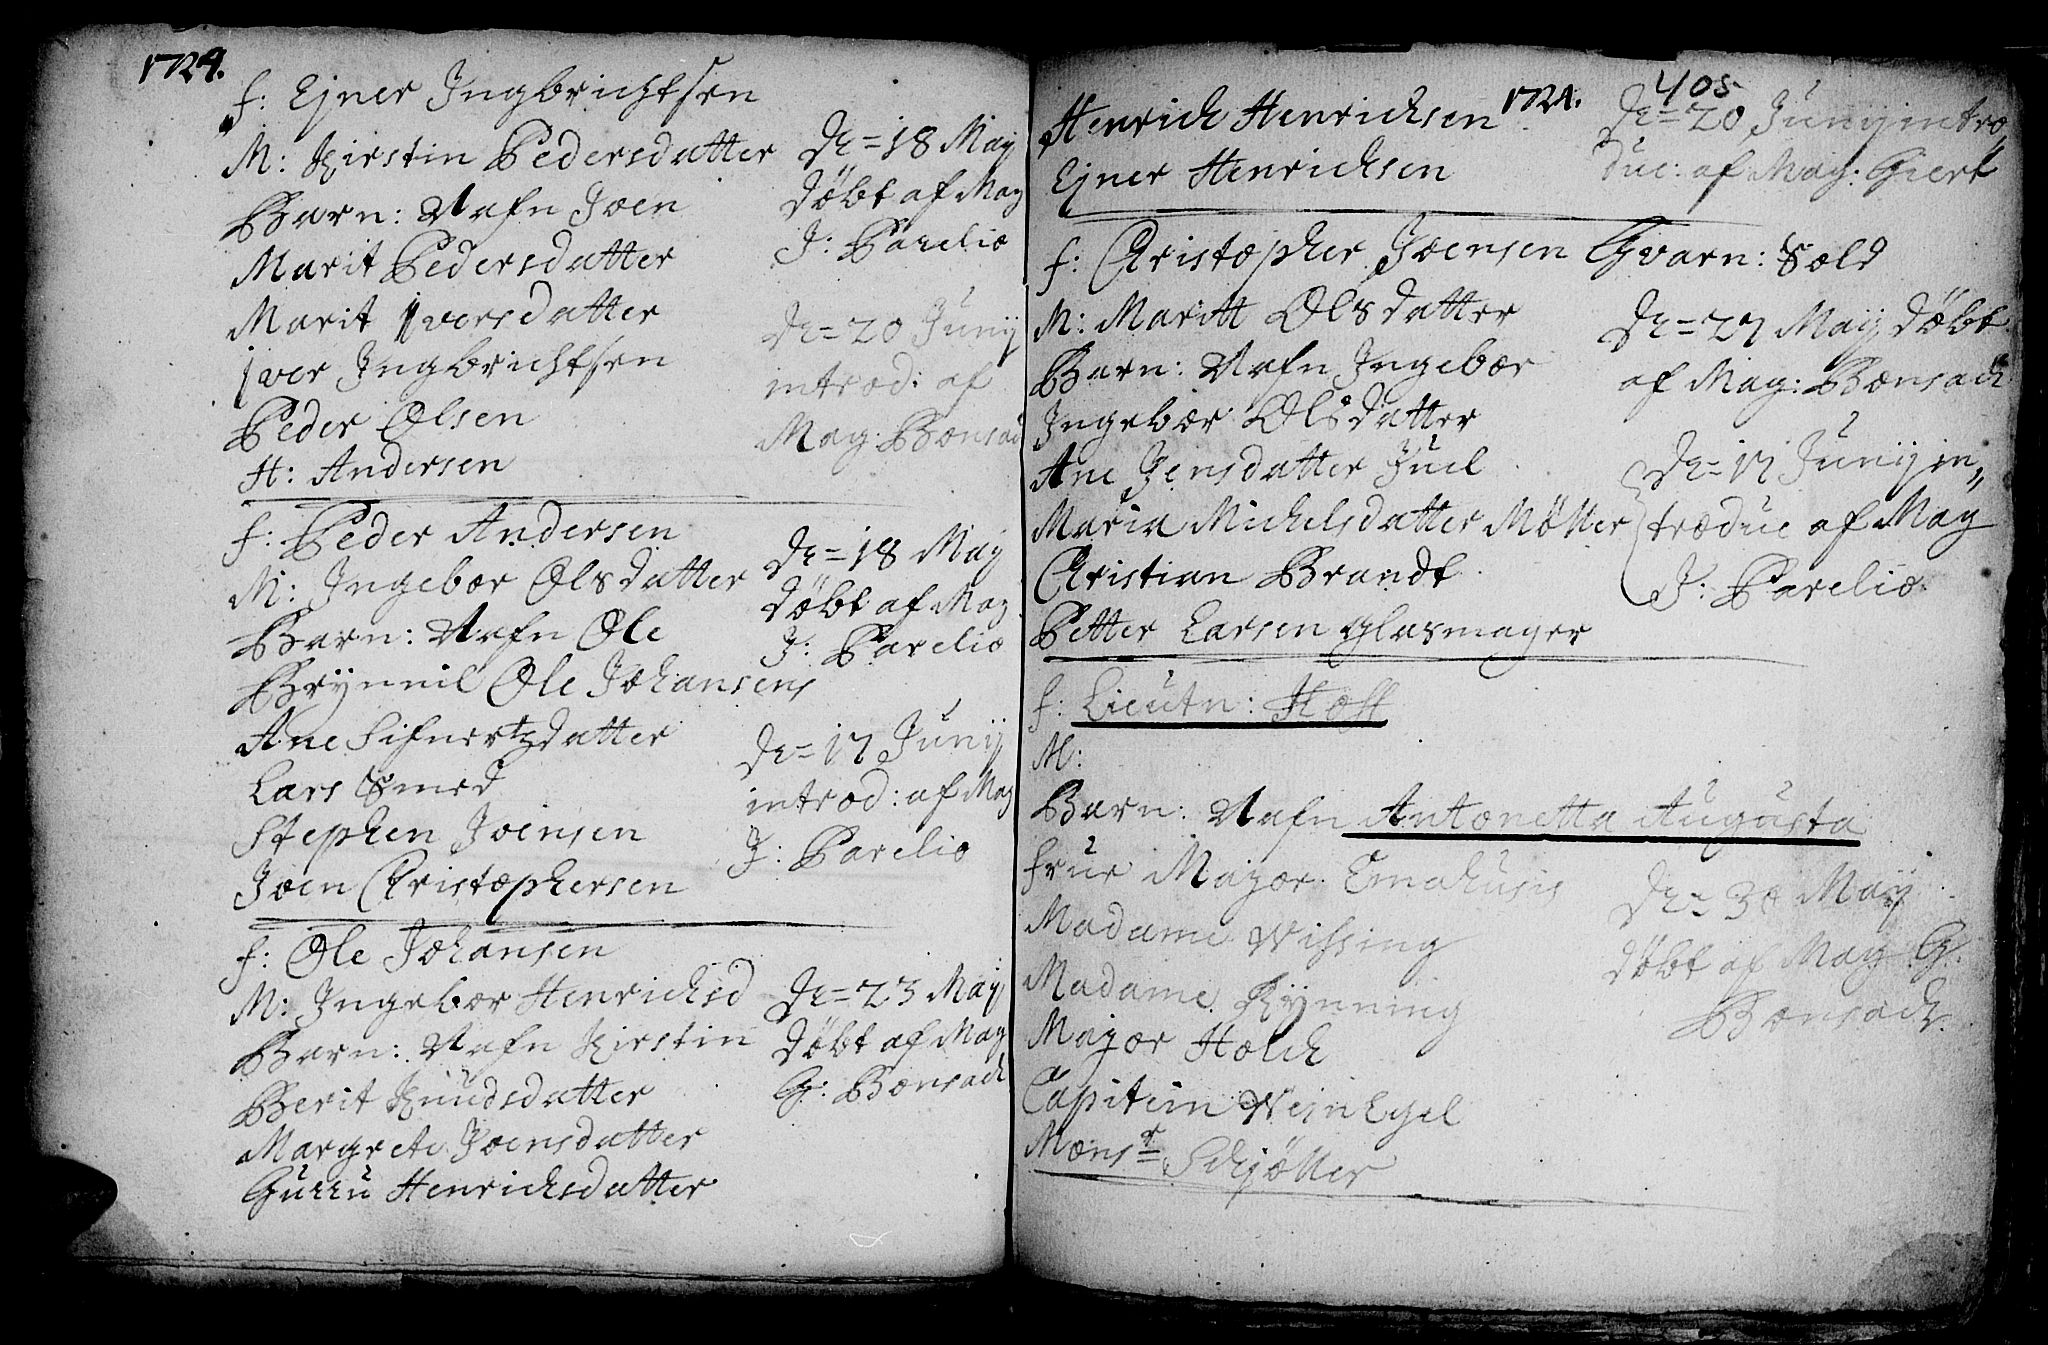 1724.
F: Ejner Ingbrichtsen
M: Kirstin Pedersdatter
Barn: Nafn Joen
Marit Pedersdatter
Marit Iversdatter
Iver Ingbrichtsen
Peder Olsen
H: Andersen
De = 18 Maij
døbt af Mag
J: Parelio
De = 20 Junij
introd: af
Mag: Bonsac
F: Peder Andersen
M: Ingebor Olsdatter
Barn: Nafn Ole
Brynnil Ole Johansens
Ane Sifuertzdatter
Lars Smed
Stephen Joensen
Joen Christophersen
De = 18 Maij
døbt af Mag
J: Parelio
De = 17 Junij
introd: af Mag
J: Parelio
F: Ole Johansen
M: Ingebor Henrichsd
Barn: Nafn Kirstin
Berit Knudsdatter
Margrete Joensdatter
Gurru Henrichsdatter
De = 23 Maij
døbt af Mag
G: Bonsach
1724.
405
Henrich Henrichsen
Ejner Henrichsen
De = 20 Junij intro,,
duc: af Mag: Giert
F: Christopher Joensen Gvarn: Sold
M: Maritt Olsdatter
Barn: Nafn Ingebor
Ingebor Olsdatter
Ane Jensdatter Juel
Maria Michelsdatter Møller
Christian Brandt
Petter Larsen glasmager
De = 27 Maij døbt
af Mag: Bonsach
De = 17 Junij in,,
troduc af Mag
J: Parelio.
F: Lieutn: Hoff
M:
Barn: Nafn Antonetta Augusta
Frue Major Emahusis
Madame Wissing
Madame Rynning
Major Holck
Capitein
Monsr Schjøller
De = 30 Maij
døbt af Mag G.
Bonsach.